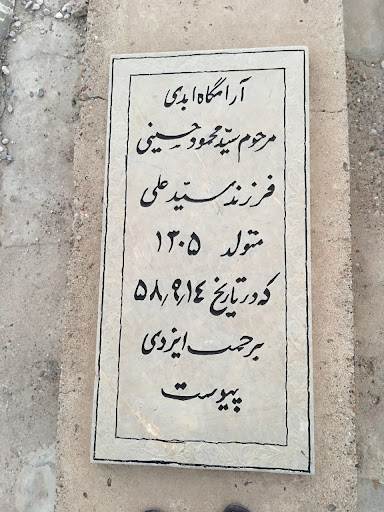 آرامگاه ابدی
مرحوم سید محمود حسینی
فرزند سید علی
متولد ۱۳۰۵
که در تاریخ ۵۸٫۹٫۱۴
برحمت ایزدی
پیوست